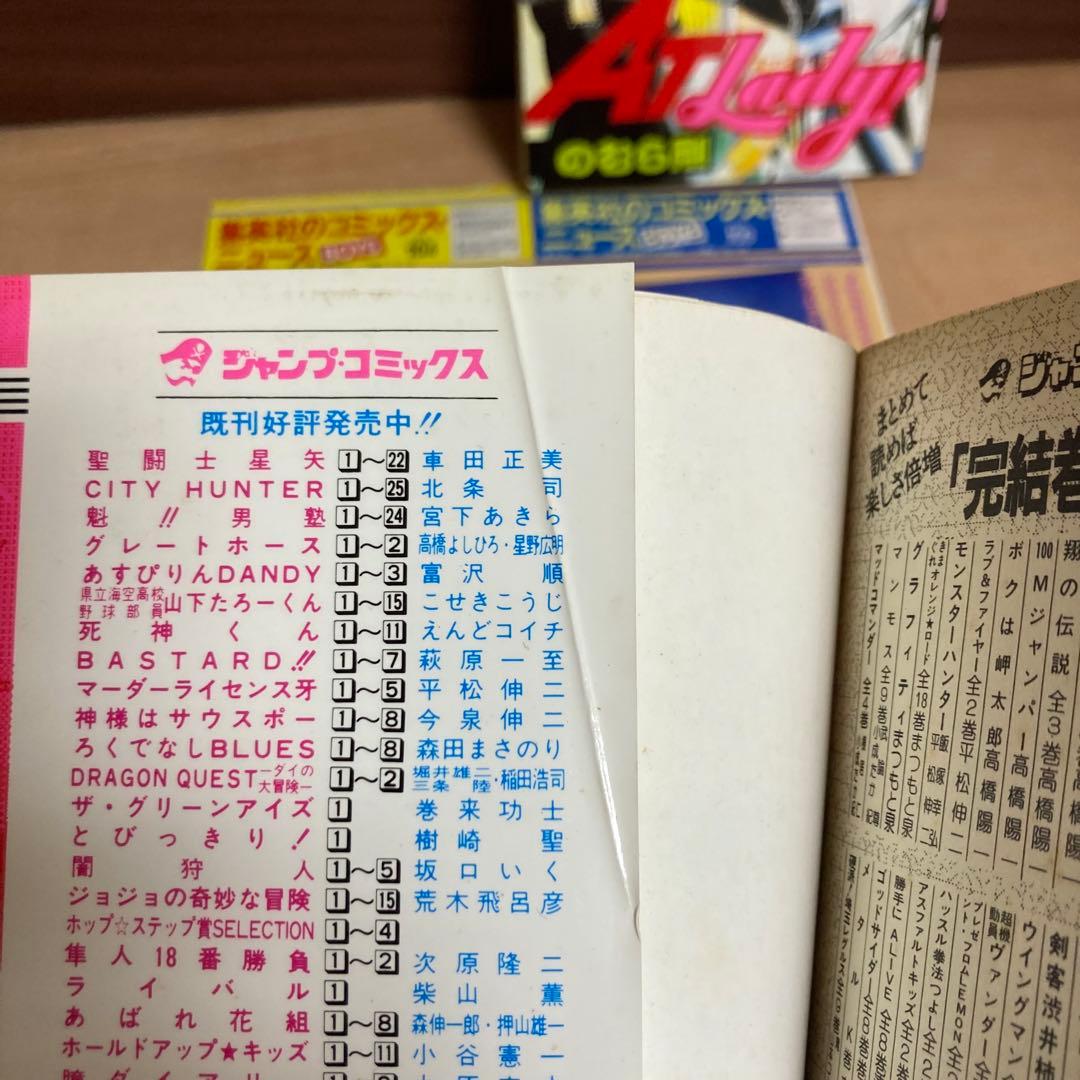 AT Lady!
のむら剛
集英社のコミックス
ニュース BOYS
集英社のコミックス
ニュース
ジャンプ・コミックス
既刊好評発売中!!
聖闘士星矢 1〜22 車田正美
CITY HUNTER 1〜25 北条司
魁!!男塾 1〜24 宮下あきら
グレートホース 1〜2 高橋よしひろ・星野広明
あすぴりんDANDY 1〜3 富沢順
県立海空高校野球部員山下たろーくん 1〜15 こせきこうじ
死神くん 1〜11 えんどコイチ
BASTARD!! 1〜7 萩原一至
マーダーライセンス牙 1〜5 平松伸二
神様はサウスポー 1〜8 今泉伸二
ろくでなしBLUES 1〜8 森田まさのり
DRAGON QUEST―ダイの大冒険― 1〜2 堀井雄二・三条陸・稲田浩司
ザ・グリーンアイズ 1 巻来功士
とびっきり! 1 樹崎聖
闇狩人 1〜5 坂口いく
ジョジョの奇妙な冒険 1〜15 荒木飛呂彦
ホップ☆ステップ賞SELECTION 1〜4
隼人18番勝負 1〜2 次原隆二
ライバル 1 柴山薫
あばれ花組 1〜8 森伸一郎・押山雄一
ホールドアップ★キッズ 1〜11 小谷憲一
まとめて
読めば
楽しさ倍増
「完結巻
翔の伝説 全3巻 高橋陽一
100Mジャンパー 高橋陽一
ボクは岬太郎 高橋陽一
ラブ&ファイヤー 全2巻 平松伸二
モンスターハンター 飯塚幸弘
きまぐれオレンジ★ロード 全18巻 まつもと泉
グラフィティ まつもと泉
マンモス 全9巻
マッドコマンダー 全4巻
剣客渋井柿
ウイングマン 全
超機動員ヴァンダー 全
プレゼント・フロムLEMON 全2
ハッスル拳法つよし 全2巻
アスファルトキッズ 全2巻
勝手にALIVE 全8巻
ゴッドサイダー 全8巻
メタルK